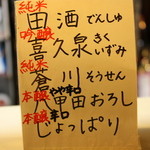 純米 田酒 でんしゅ
吟醸 喜久泉 きくいずみ
純米 蒼川 そうせん
本醸 やや辛口 田おろし
本醸 辛口 じょっぱり